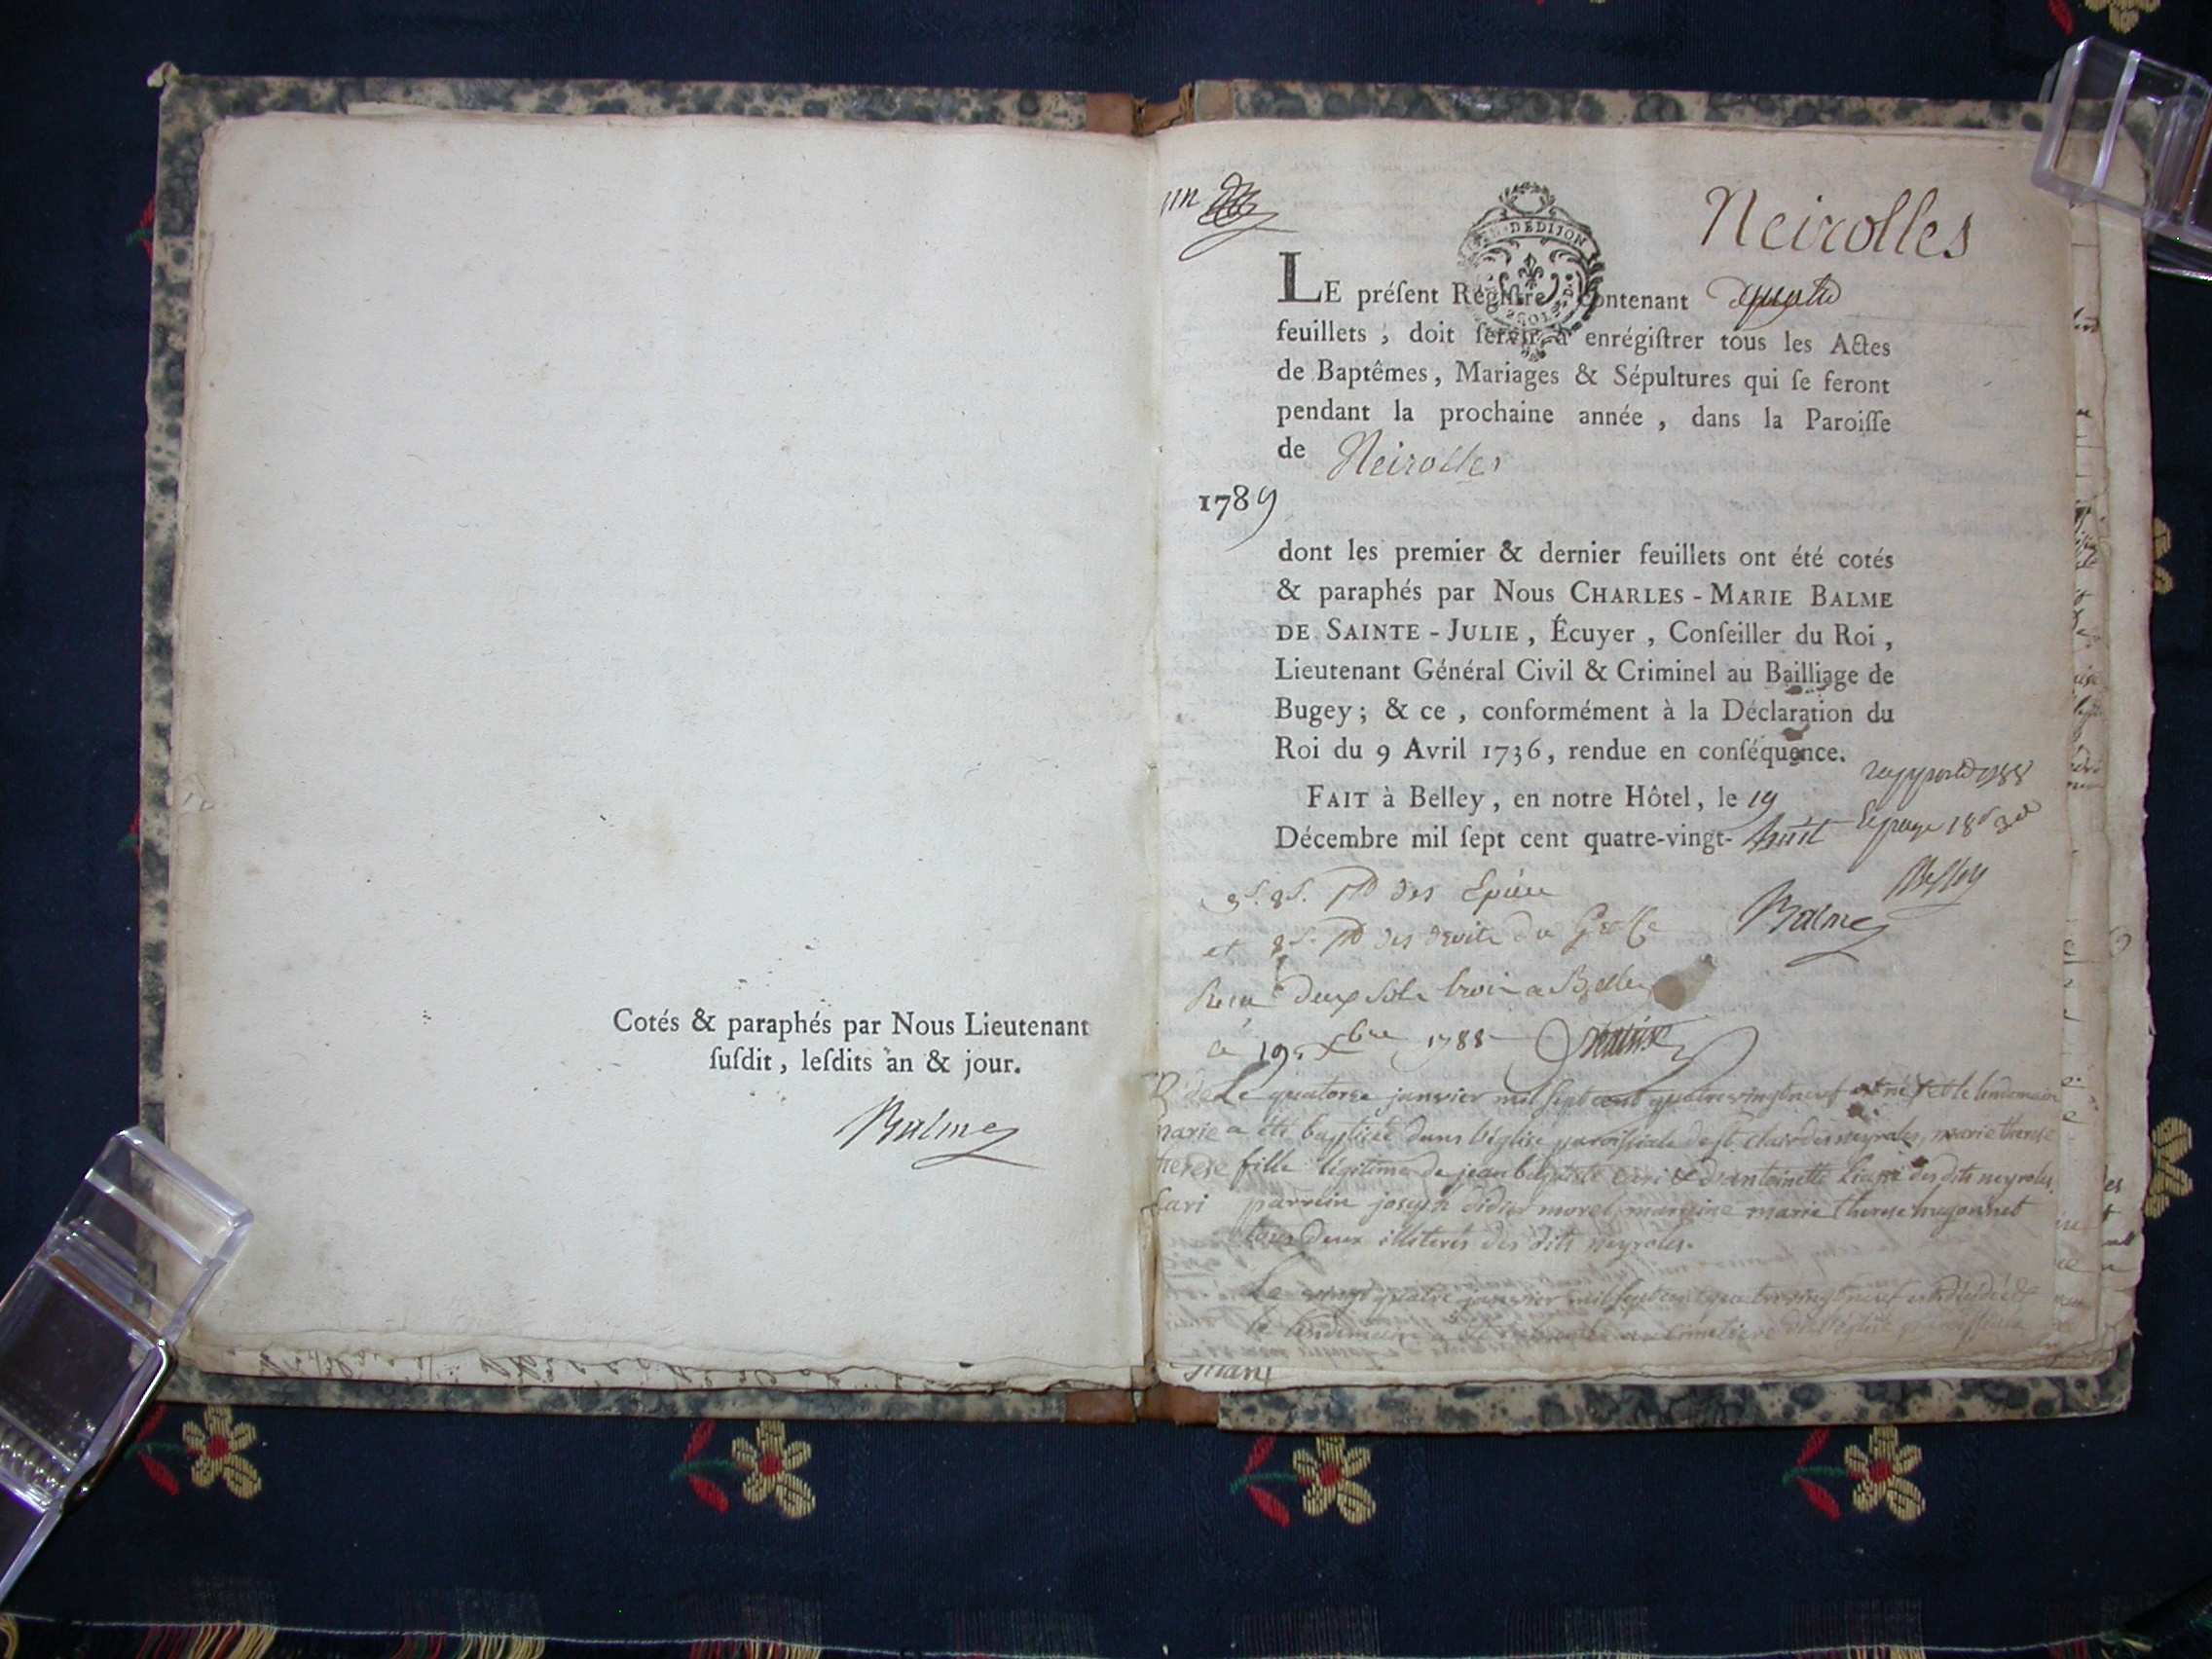 Cotés & paraphés par Nous Lieutenant
ſuſdit, leſdits an & jour.
Balme
un
Neirolles
DE DIJON
LE préſent Regiſtre contenant
feuillets, doit ſervir à enrégiſtrer tous les Actes
de Baptêmes, Mariages & Sépultures qui ſe feront
pendant la prochaine année, dans la Paroiſſe
de Neirolles
1789
dont les premier & dernier feuillets ont été cotés
& paraphés par Nous CHARLES-MARIE BALME
DE SAINTE-JULIE, Écuyer, Conſeiller du Roi,
Lieutenant Général Civil & Criminel au Bailliage de
Bugey; & ce, conformément à la Déclaration du
Roi du 9 Avril 1736, rendue en conſéquence.
FAIT à Belley, en notre Hôtel, le 19
Décembre mil ſept cent quatre-vingt-huit
Balme
et des du Greffe
Recu deux sols trois a Belley
a 19 Xbre 1788
Le quatorze janvier mil sept cent quatre vingt neuf est né et le lendemain
marie a été baptisée dans l'église paroissiale de st clair des neyroles, marie therese
therese fille légitime de jean baptiste cari & d'antoinette des dits neyroles,
Cari parrein joseph didier morel, marreine marie therese
tous deux illiterés des dits neyroles.
Le vingt quatre janvier mil sept cent quatre vingt neuf est décédé &
le lendemain a été au cimetiere de l'église paroissiale